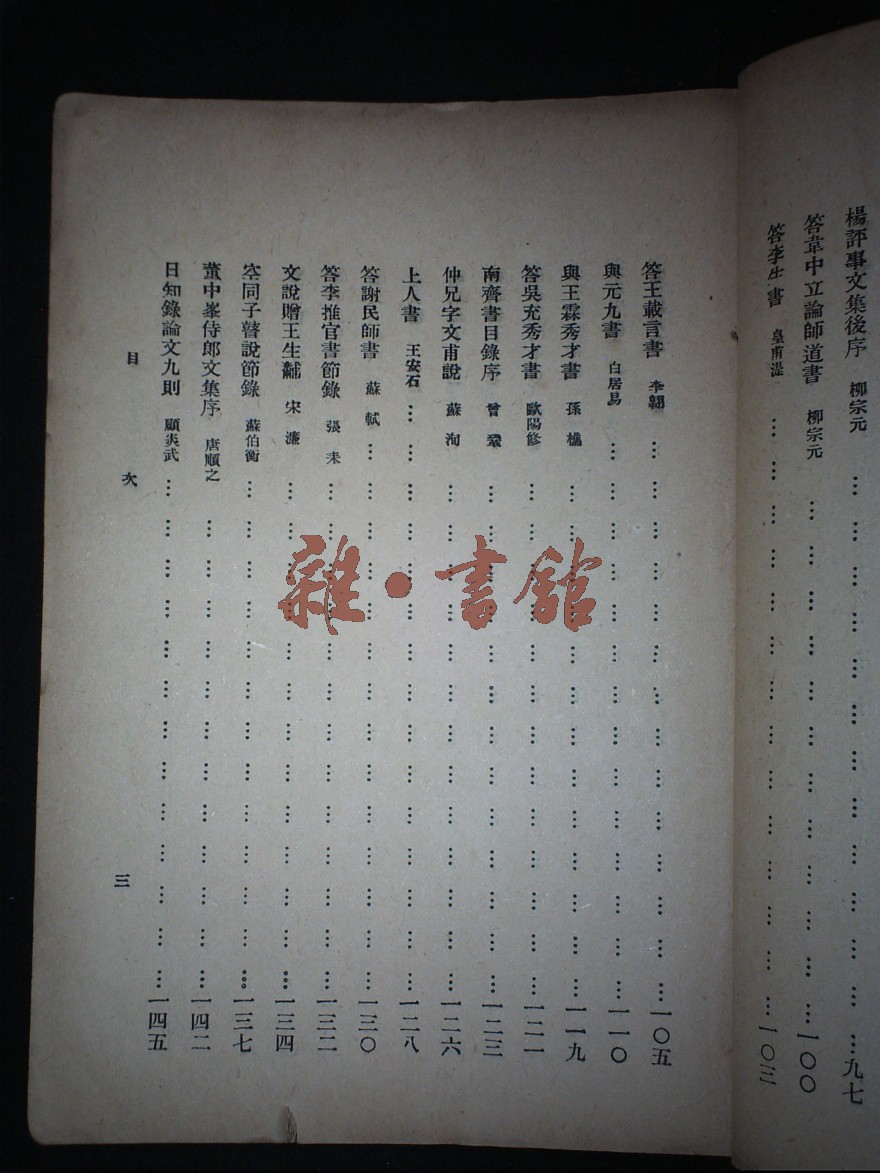 楊評事文集後序 柳宗元 … … … … … … … … … … … … …九七
答韋中立論師道書 柳宗元 … … … … … … … … … … … … …一〇〇
答李生書 皇甫湜 … … … … … … … … … … … … … … …一〇三
答王載言書 李翱 … … … … … … … … … … … … … …一〇五
與元九書 白居易 … … … … … … … … … … … … … …一一〇
與王霖秀才書 孫樵 … … … … … … … … … … … … …一一九
答吳充秀才書 歐陽修 … … … … … … … … … … … … …一二一
南齊書目錄序 曾鞏 … … … … … … … … … … … … …一二三
仲兄字文甫說 蘇洵 … … … … … … … … … … … … …一二六
上人書 王安石 … … … … … … … … … … … … … … …一二八
答謝民師書 蘇軾 … … … … … … … … … … … … … …一三〇
答李推官書節錄 張耒 … … … … … … … … … … … … …一三二
文說贈王生黼 宋濂 … … … … … … … … … … … … …一三四
空同子瞽說節錄 蘇伯衡 … … … … … … … … … … … … …一三七
董中峯侍郎文集序 唐順之 … … … … … … … … … … … …一四二
日知錄論文九則 顧炎武 … … … … … … … … … … … … …一四五
目 次 三
雜·書館